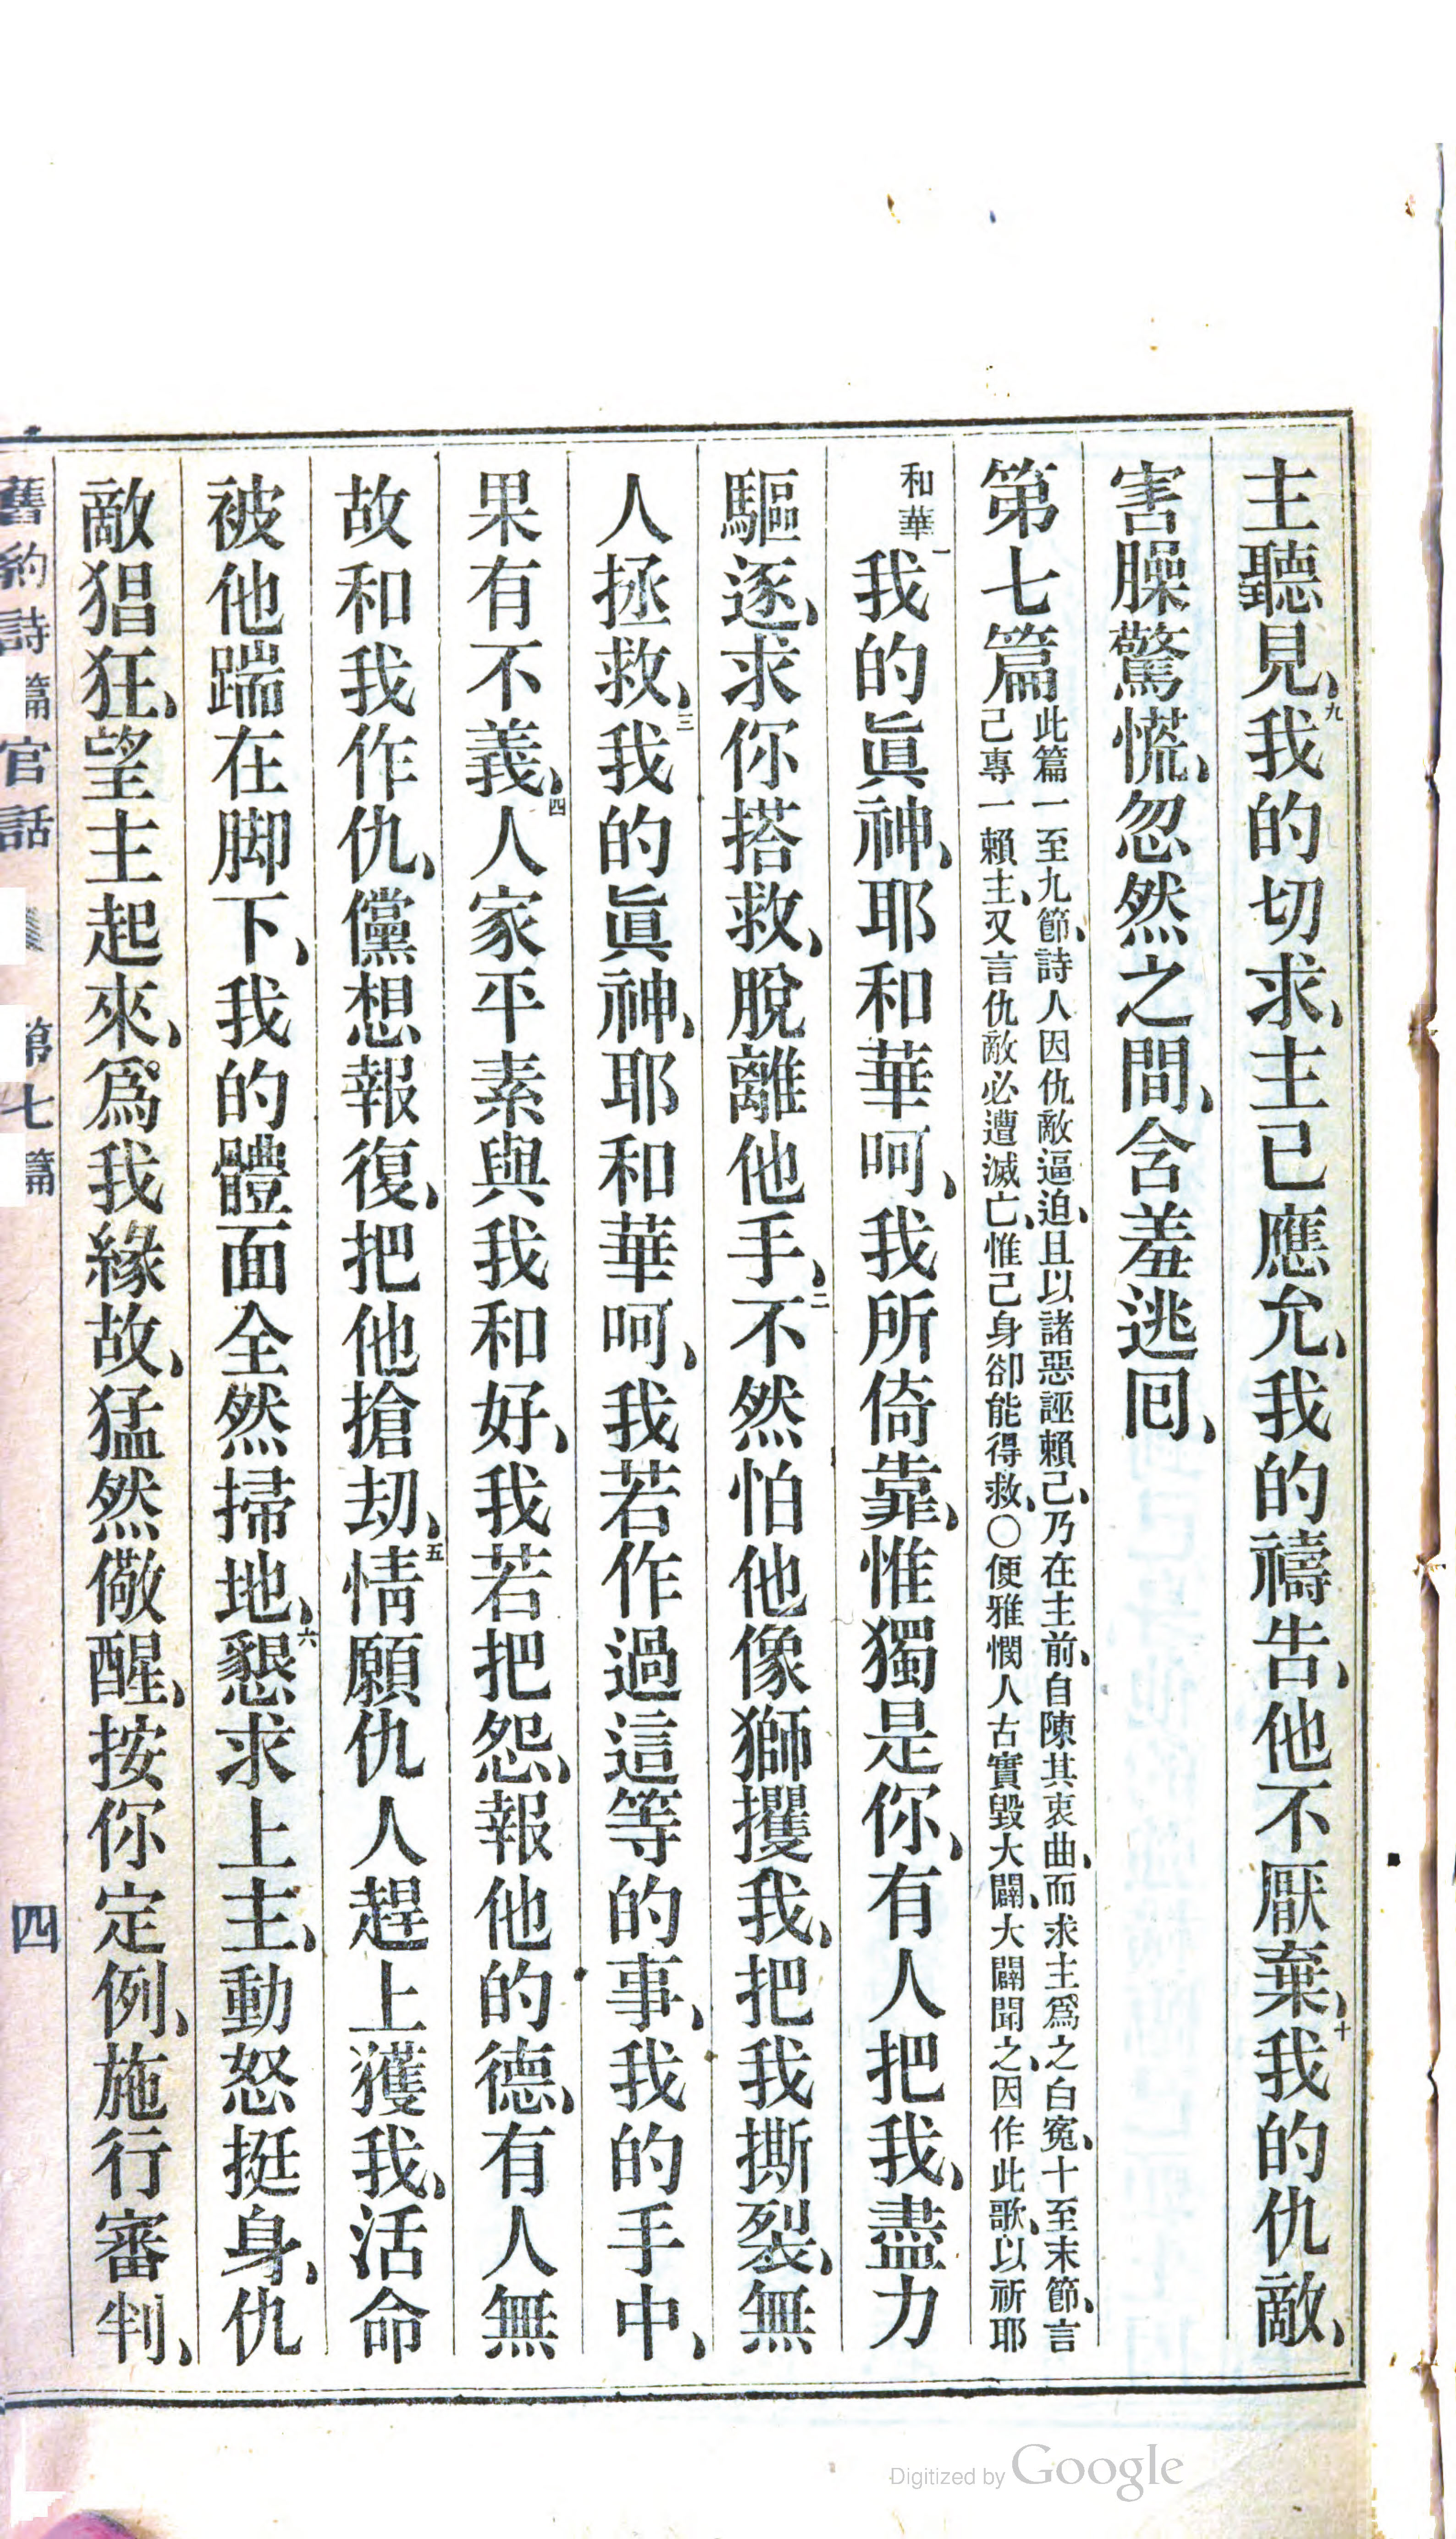 主聽見、九我的切求、主已應允、我的禱告、他不厭棄、十我的仇敵、
害臊驚慌、忽然之間、含羞逃回、
第七篇
此篇一至九節、詩人因仇敵逼迫、且以諸惡誣賴己、乃在主前、自陳其衷曲、而求主爲之白寃、十至末節、言
己專一賴主、又言仇敵必遭滅亡、惟己身卻能得救、○便雅憫人古實毀大闢、大闢聞之、因作此歌、以祈耶
和華一我的眞神、耶和華呵、我所倚靠、惟獨是你、有人把我、盡力
驅逐、求你搭救、脫離他手、二不然怕他像獅攫我、把我撕裂、無
人拯救、三我的眞神、耶和華呵、我若作過這等的事、我的手中、
果有不義、四人家平素與我和好、我若把怨、報他的德、有人無
故和我作仇、儻想報復、把他搶刧、五情願仇人趕上獲我、活命
被他踹在脚下、我的體面全然掃地、六懇求上主、動怒挺身、仇
敵猖狂、望主起來、爲我緣故、猛然儆醒、按你定例、施行審判、
舊約詩篇官話 第七篇 四
Digitized by Google